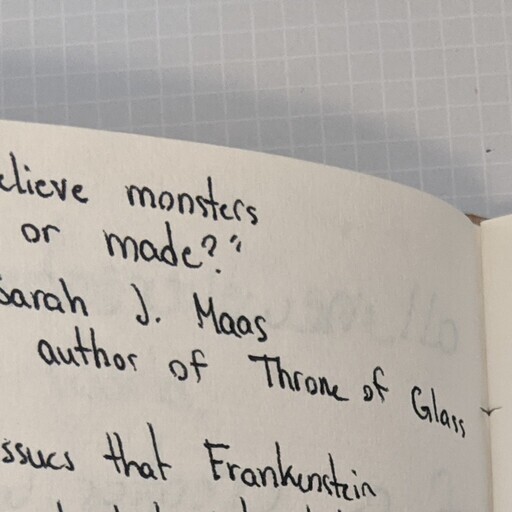 elieve monsters
or made?"
Sarah J. Maas
author of Throne of Glass
ssues that Frankenstein